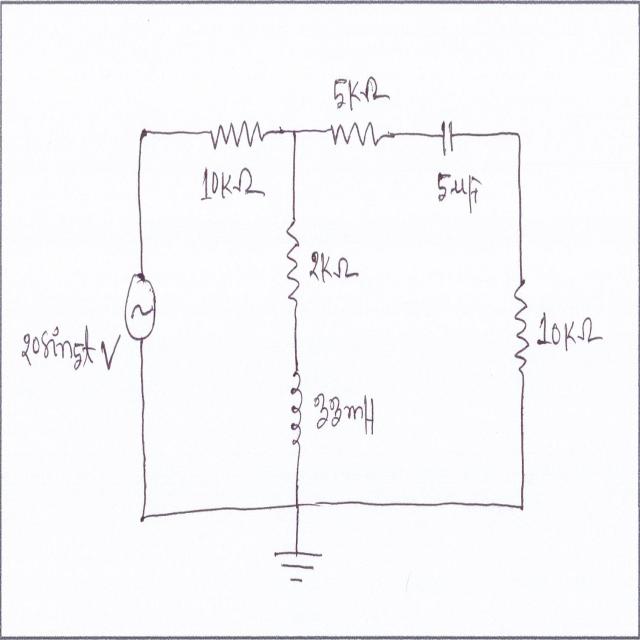 5KΩ
10KΩ
5μF
2KΩ
20sin5t V
10KΩ
33mH